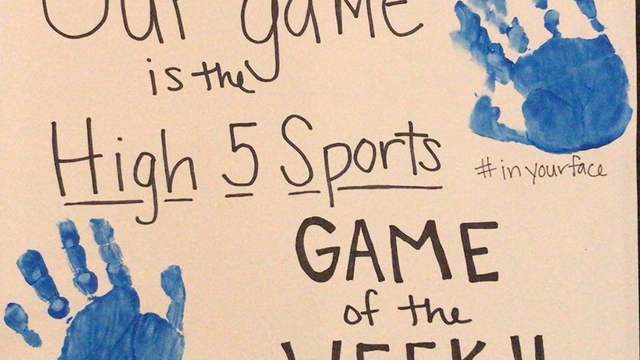 Our game
is the
High 5 Sports
#inyourface
GAME
of the
WEEK!!